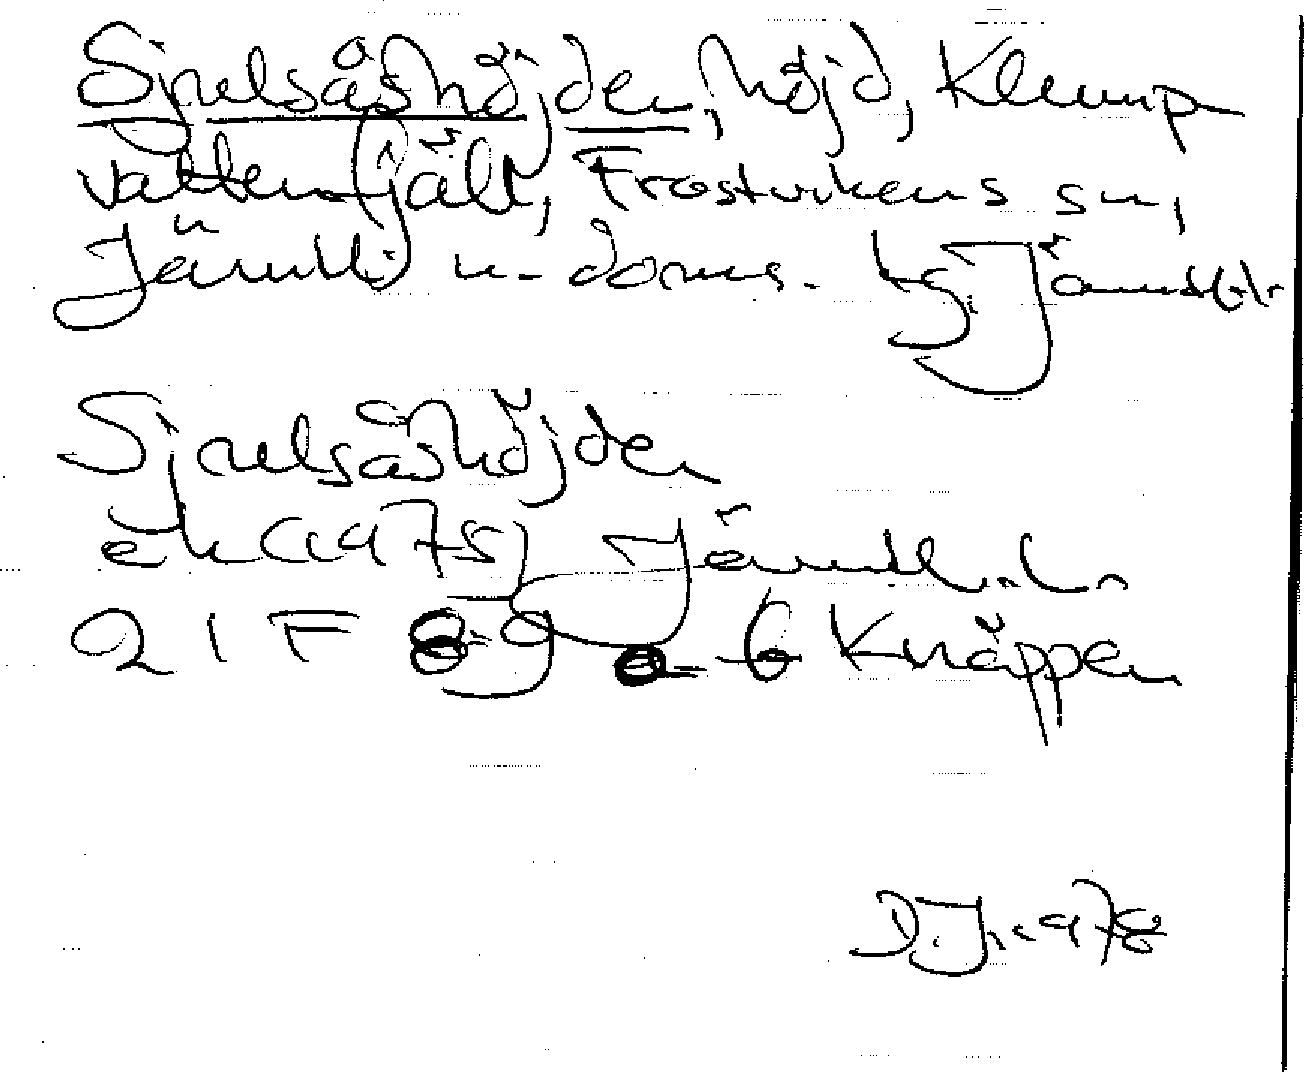 Sjnelsåshöjden, höjd, Klump
vattenfjäll, Frostvikens sn,
Jämtl. n. doms. ts. Jämtl. l.
Sjnelsåshöjden
ek (1975) Jämtl. l.
21 F 8-9 a-b Knäppen
D. J. 1978